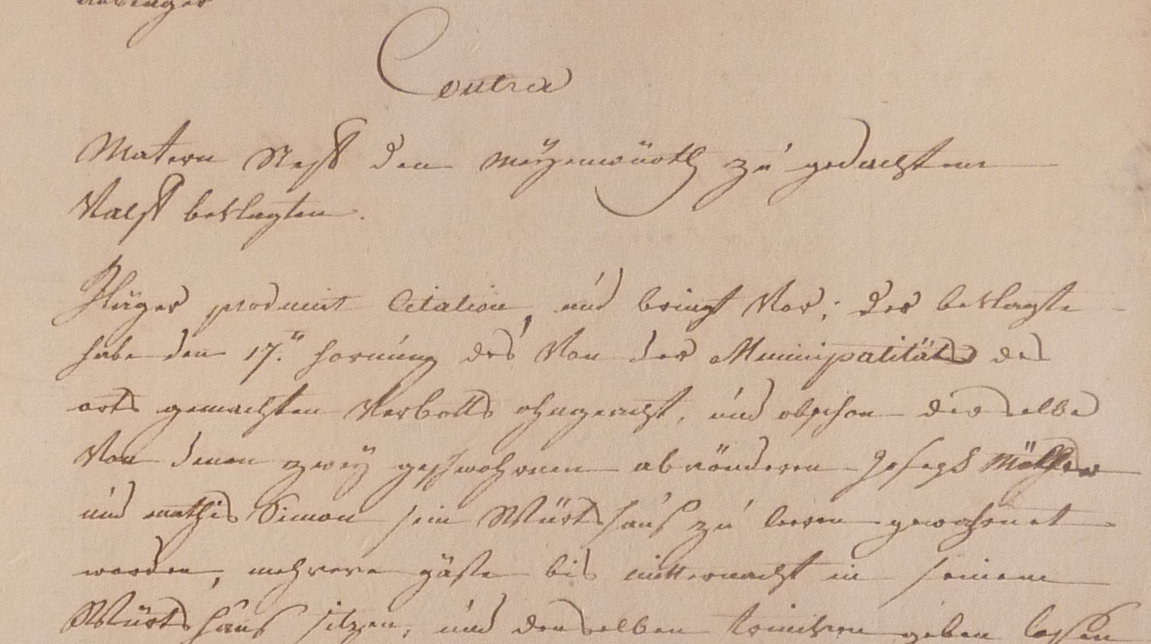 Contra
Matern den Meyenwürth zu gedachtem
Valff beklagten.
Kläger producirt Citation, und bringt Vor; der beklagte
habe den 17.ten hornung des Von der Municipalität des
orts gemachten Verbotts ohngeacht, und obschon derselbe
Von denen zwey geschwohrnen abränderen Joseph
und mathis Simon sein Würtshaus zu leeren gewahrnet
worden, mehrere gäste bis mitternacht in seinem
Würtshaus sitzen, und denselben trincken geben lassen